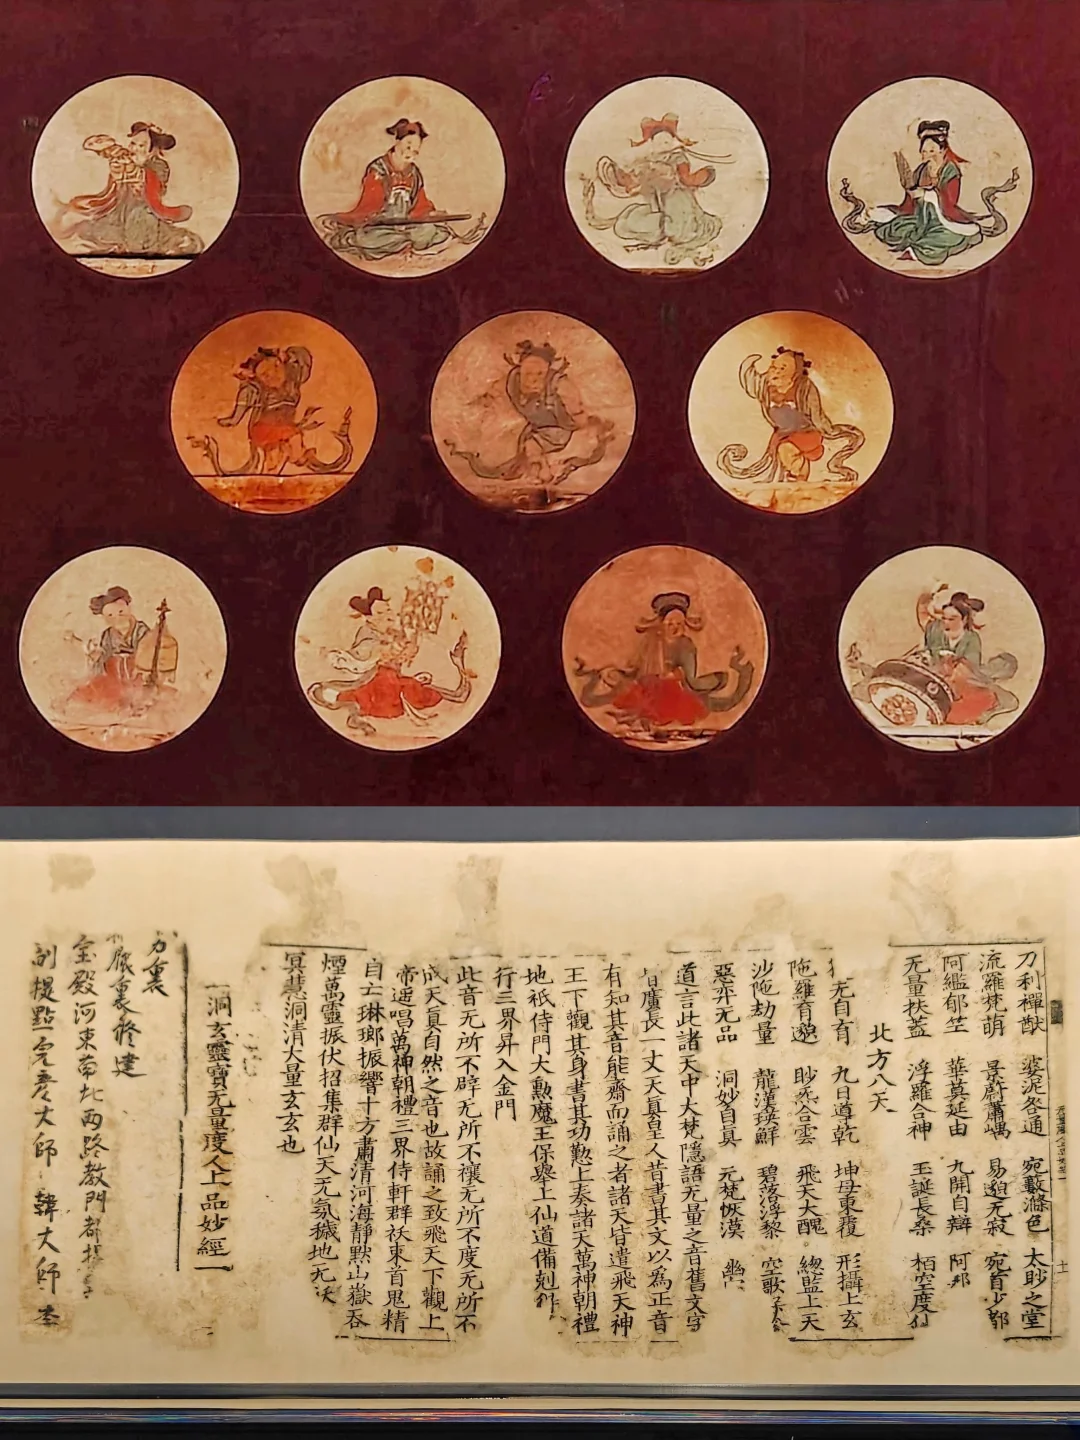 刀利禪猷　婆泥咎通　宛藪滌色　太眇之堂
流羅梵萌　景蔚蕭嵎　易邈无寂　宛首少都
阿䍀郁竺　華莫延由　九開自辯　阿那
无量扶蓋　浮羅合神　玉誕長桑　栢空度仙
北方八天
无自育　九日導乾　坤母東覆　形攝上玄
陁羅育邈　眇炁合雲　飛天大醜　總監上天
沙陁劫量　龍漢瑛鮮　碧落浮黎　空歌
惡弈无品　洞妙自真　元梵恢漠　幽
道言此諸天中大梵隱語无量之音舊文字
皆廣長一丈天真皇人昔書其文以為正音
有知其音能齋而誦之者諸天皆遣飛天神
王下觀其身書其功懃上奏諸天萬神朝禮
地祇侍門大勲魔王保舉上仙道備剋
行三界昇入金門
此音无所不辟无所不禳无所不度无所不
成天真自然之音也故誦之致飛天下觀上
帝遥唱萬神朝禮三界侍軒群祅束首鬼精
自亡琳瑯振響十方肅清河海靜默山嶽吞
煙萬靈振伏招集群仙天无氛穢地无祅
冥慧洞清大量玄玄也
洞玄靈寶无量度人上品妙經
裏
裏修建
宝殿河東南北两路教門都提
副提點 大師 韓大師